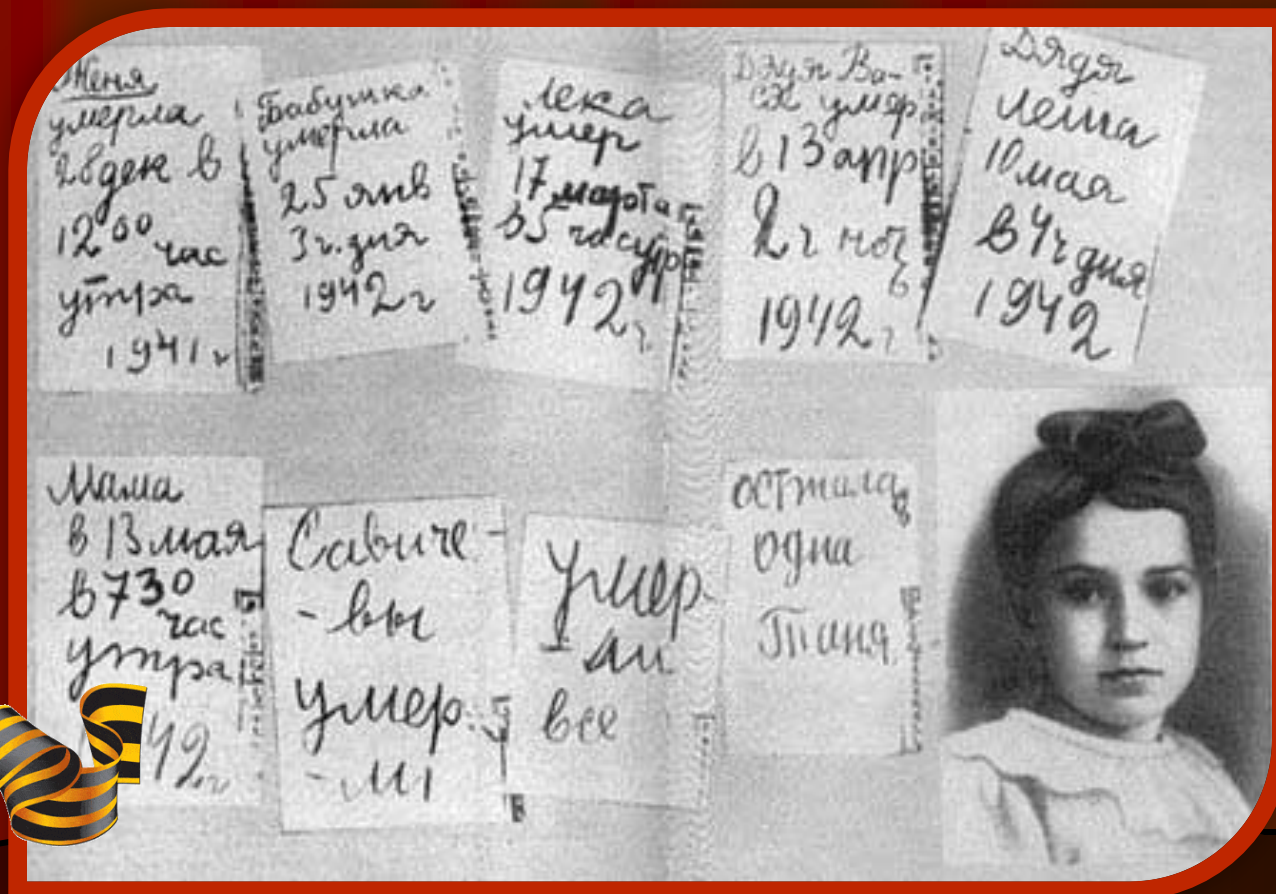 Женя
умерла
28 ден в
12 00 час
утра
1941 г
Бабушка
умерла
25 янв
3 ч. дня
1942 г
Лека
умер
17 марта
в 5 час утр
1942 г
Дядя Ва-
ся умер
в 13 апр
2 ч ночь
1942 г
Дядя
Леша
10 мая
в 4 ч дня
1942
Мама
в 13 мая
в 7 30
час
утра
42 г
Савиче-
-вы
умер
-ли
умер-
-ли
все
осталась
одна
Таня